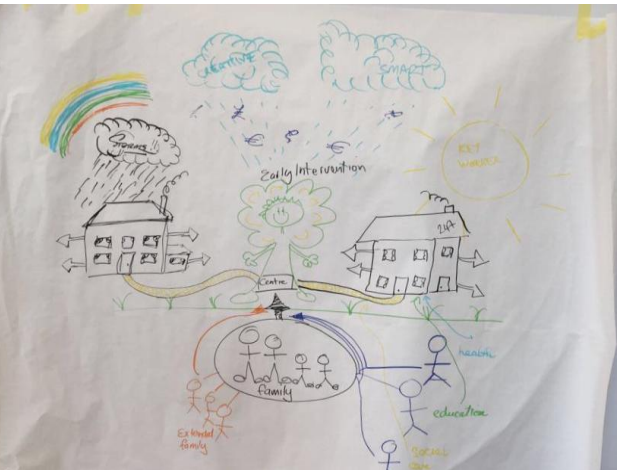 CREATIVE
SMART
STORMS
KEY
WORKER
Early Intervention
24/7
Centre
family
health
education
Extended
family
SOCIAL